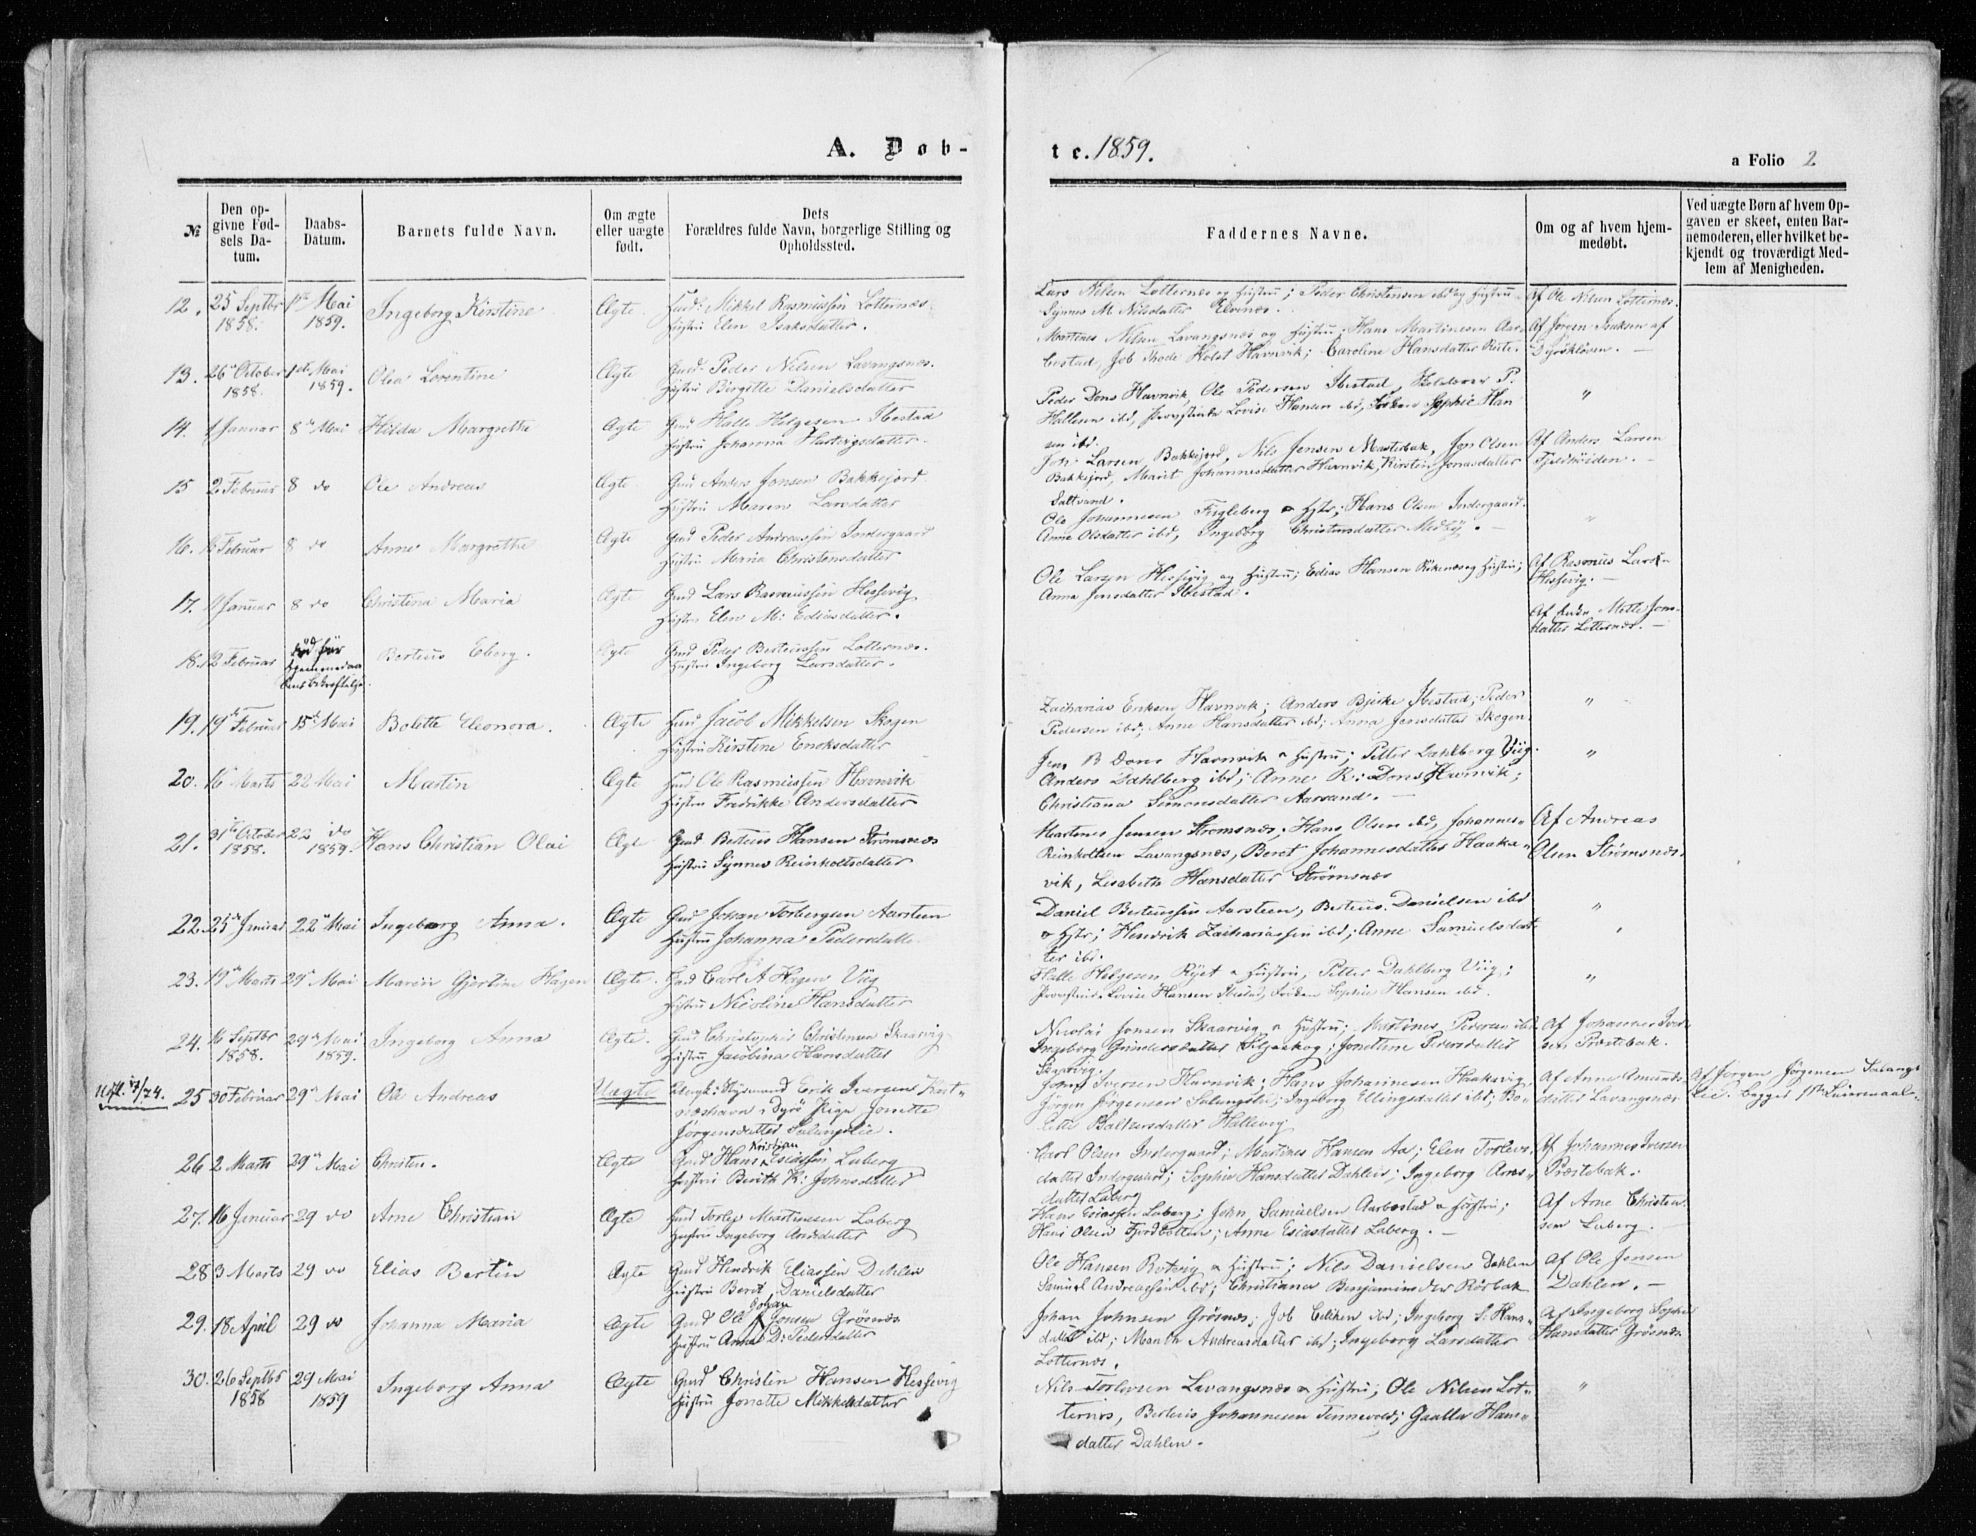 A. Døb-
te. 1859.
a Folio 2
№
Den op-
givne Fød-
sels Da-
tum.
Daabs-
Datum.
Barnets fulde Navn.
Om ægte
eller uægte
født.
Dets
Forældres fulde Navn, borgerlige Stilling og
Opholdssted.
Faddernes Navne.
Om og af hvem hjem-
medøbt.
Ved uægte Børn af hvem Op-
gaven er skeet, enten Bar-
nemoderen, eller hvilket be-
kjendt og troværdigt Med-
lem af Menigheden.
12. 25 Septbr 1858. 1ste Mai 1859. Ingeborg Kirstine Ægte
Gud. Mikkel Rasmussen Lotternæs.
Hustru Elen Isaksdatter.
Lars Nilsen Lotternæs og Hustru; Peder Christensen ibd og Hustru
Synnev M Nilsdatter Elvenæs.
Af Ole Nilsen Lotternæs.
13. 26 October 1858. 1ste Mai 1859. Olea Lorentine Ægte
Gud. Peder Nilsen Lavangsnæs.
Hustru Birgitte Danielsdatter
Martines Nilsen Lavangsnæs og Hustru; Hans Martinesen Aar-
bostad, Job Rode Holst Havnvik; Caroline Hansdatter
Af Jørgen Isaksen af
Dyrskløven.
14. 1 Januar 8de Mai Hilda Margrethe Ægte
Gud Halle Helgesen Ibestad
Hustru Johanna Hartvigsdatter.
Peder Dons Havnvik, Ole Pedersen Ibestad, P.
Hallesen ibd, Lovise Hansen ibd, Sophie Han
sen ibd.
"
15 2 Februar 8 do Ole Andreas Ægte
Gud Anders Jonsen Bakkejord
Hustru Maren Larsdatter
Joh. Larsen Bakkejord, Nils Jensen Mestebak, Jon Olsen
Bakkejord, Marit Johannesdatter Havnvik, Kirsten Jonasdatter
Saltvand.
Af Anders Larsen
16. Februar 8 do Anne Margrethe Ægte
Gud Peder Andreassen Indergaard
Hustru Maria Christensdatter
Ole Johannesen Fugleberg & Hstr; Hans Olsen Indergaard.
Anne Olsdatter ibd, Ingeborg Christensdatter
"
17. 11 Januar 8 do Christina Maria Ægte
Gud Lars Rasmussen Hessevig
Hustru Elen M. Ediasdatter.
Ole Larsen Hessevig og Hustru; Edias Hansen og Hustru;
Anna Jensdatter Ibestad.
Af Rasmus Larsen
Hessevig.
18. 12 Februar Død før
Hjemmedaa
bens Bekræftelse.
Berteus Eberg. Ægte
Gud Peder Berteussen Lotternæs.
Hustru Ingeborg Larsdatter.
Af Enke Mette Jons-
datter Lotternæs.
19. 19de Februar 15de Mai Bolette Eleonora. Ægte
Gud Jacob Mikkelsen Skogen
Hustru Kirstine Enoksdatter
Zacharias Eriksen Havnvik; Anders Bjerke Ibestad; Peder
Pedersen ibd; Anne Hansdatter ibd; Anna Jensdatter Skogen.
"
20. 16 Marts 22 Mai Martin Ægte
Gud Ole Rasmussen Havnvik
Hustru Fredrikke Andersdatter
Jens B Dons Havnvik & Hustru; Petter Dahlberg Viig
Anders Dahlberg ibd; Anne R: Dons Havnvik;
Christiana Simonsdatter Aarsand.
"
21. 31te October 1858. 22 do 1859. Hans Christian Olai Ægte
Gud Berteus Hansen Strømsnæs
Hustru Synnev Reinholtsdatter
Martines Jensen Strømsnæs; Hans Olsen ibd, Johannes
Reinholtsen Lavangsnæs, Beret Johannesdatter Haaka-
vik, Lisabeth Hansdatter Strømsnæs
Af Andreas
Olsen Strømsnæs.
22. 25de Januar 22de Mai Ingeborg Anna. Ægte
Gud Johan Torbergsen Aarsteen
Hustru Johanna Pedersdatter
Daniel Berteussen Aarsteen, Berteus Danielsen ibd
& Hstr; Hendrik Zachariassen ibd; Anne Samuelsdat
ter ibd.
"
23. 19de Marts 29de Mai Maren Gjertine Hagen Ægte.
Gud Carl A Hagen Viig
Hustru Nicoline Hansdatter
Halle Helgesen Røjet & Hustru, Petter Dahlberg Viig;
Lovise Hansen Ibestad, Sophie Hansen ibd.
"
24. 16 Septbr 1858. 29de Mai 1859. Ingeborg Anna Ægte.
Gud Christopher Christensen Skaarvig
Hustru Jacobina Hansdatter
Nicolai Jonsen Skaarvig & Hustru; Martines Pedersen ibd
Ingeborg Gundersdatter; Jonettine Pedersdatter
Skarvig.
Af Johannes Iver-
sen Præstebak.
25 30 Februar 29de Mai Ole Andreas Uægte
Erik Iversen
i Dyrø Pige Jonette
Jørgensdatter Salangslie.
Johan Iversen Havnvik; Hans Johannesen Haakavig,
Jørgen Jørgensen Salangslie; Ingeborg Ellingsdatter ibd; Bo-
lette Baltzersdatter Hallevig
Af Anne Amunds-
datter Lavangsnæs
Af Jørgen Jørgensen Salangs
lie. Begges 1ste Leiermaal.
26 2 Marts 29de Mai Christen. Ægte
Gud Hans Kristian Esiassen Laberg
Hustru Berith K: Johnsdatter
Carl Olsen Indergaard; Martines Hansen Aa; Elen Torlevs-
datter Indergaard; Sophie Hansdatter Dahlen; Ingeborg Arns-
datter Laberg
Af Johannes Iversen
Præstebak.
27. 16 Januar 29 do Arne Christian Ægte
Gud Torlev Martinesen Laberg
Hustru Ingeborg Arnsdatter
Hans Esiassen Laberg; John Samuelsen Aarbostad & Hustru;
Hans Olsen Fjordbotten; Anne Esiasdatter Laberg.
Af Arne Christen
sen Laberg.
28 3 Marts 29 do Elias Bertin Ægte
Gud Hendrik Eliassen Dahlen
Hustru Beret Danielsdatter
Ole Hansen Rotvig & Hustru; Nils Danielsen Dahlen
Samuel Andreassen ibd; Christiana Benjaminsdtr Rørbak
Af Ole Jensen
Dahlen.
29. 18 April 29 do Johanna Maria Ægte
Gud Ole Johan Jonsen Grøsnæs
Hustru Anna D: Pedersdatter
Johan Johnsen Grøsnæs; Job ibd; Ingeborg S. Hans-
datter ibd; Martha Andreasdatter ibd; Ingeborg Larsdatter
Lotternæs.
Af Ingeborg Sophie
Hansdatter Grøsnæs
30. 26 Septbr 1858 29 Mai 1859 Ingeborg Anna Ægte
Gud Christen Hansen Hessevig
Hustru Jonette Mikkelsdatter
Nils Torlevsen Lavangsnæs & Hustru; Ole Nilsen Lot-
ternæs, Berteus Johannesen Tennevold; Gaalla Hans-
datter Dahlen.
"